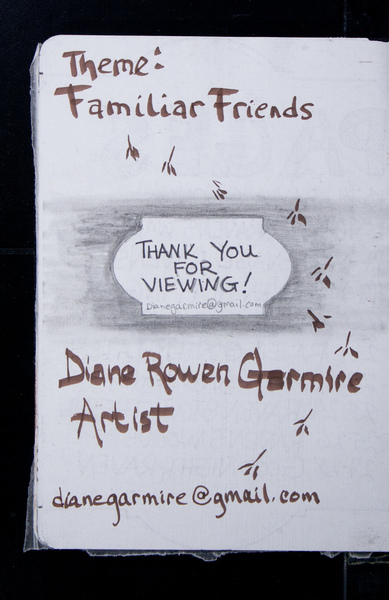 Theme:
Familiar Friends
THANK YOU
FOR
VIEWING!
dianegarmire@gmail.com
Diane Rowen Garmire
Artist
dianegarmire@gmail.com